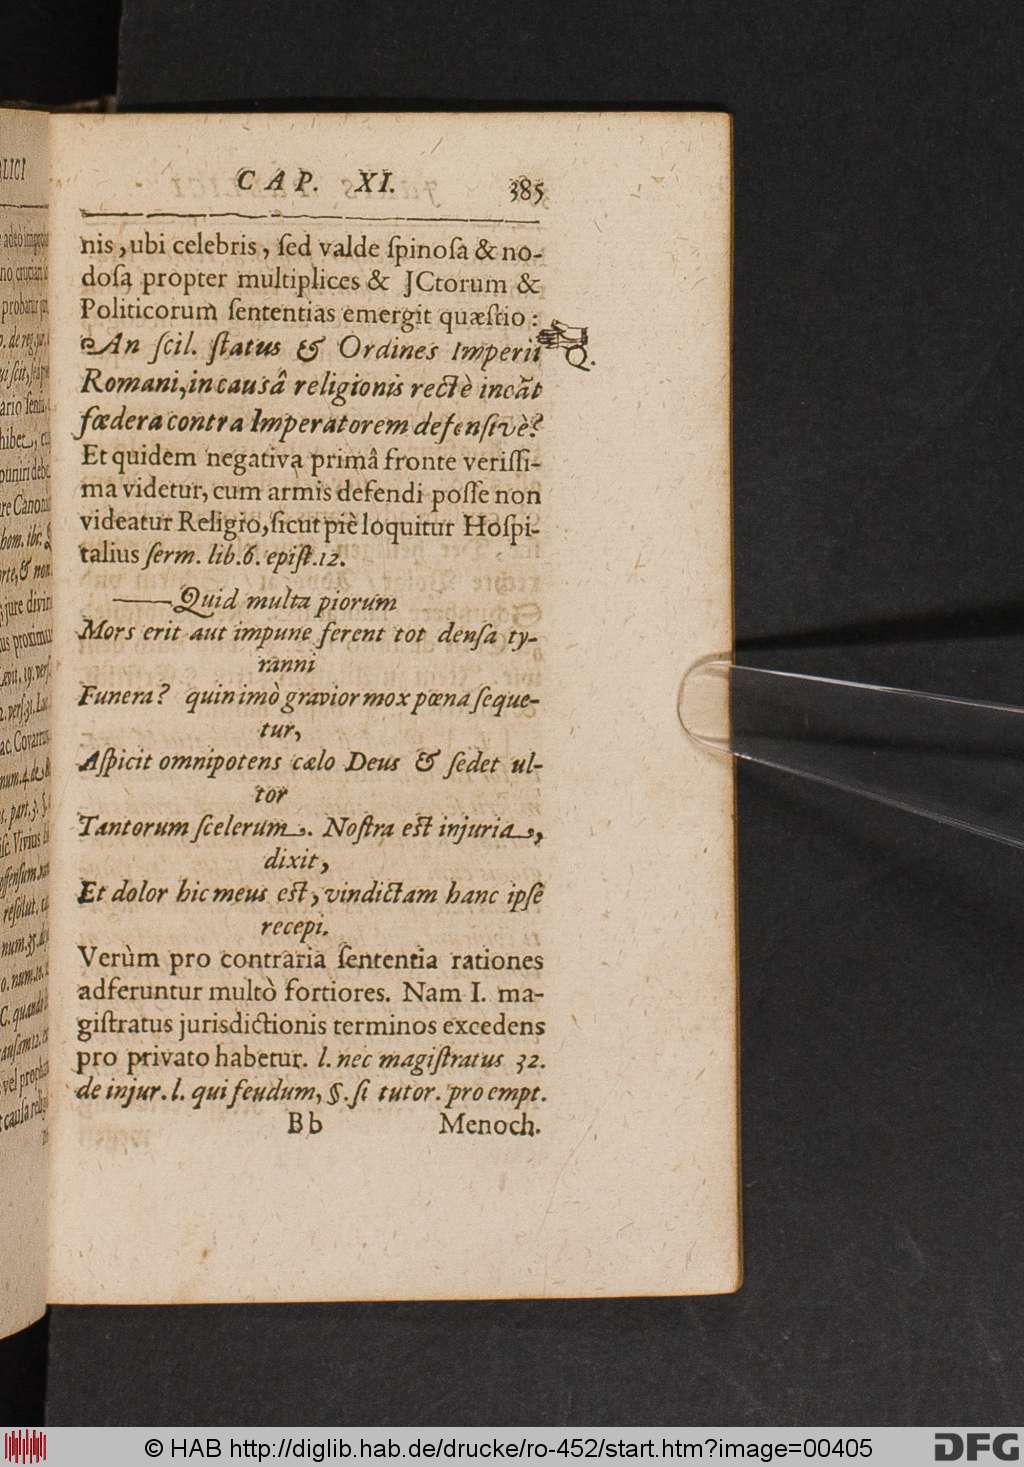 CAP. XI. 385
nis, ubi celebris, ſed valde ſpinoſa & no-
doſa propter multiplices & JCtorum &
Politicorum ſententias emergit quæſtio:
An ſcil. ſtatus & Ordines Imperii
Q.
Romani, in causâ religionis rectè incāt
fœdera contra Imperatorem defenſivè?
Et quidem negativa primâ fronte veriſſi-
ma videtur, cum armis defendi poſſe non
videatur Religio, ſicut piè loquitur Hoſpi-
talius ſerm. lib. 6. epiſt. 12.
——Quid multa piorum
Mors erit aut impune ferent tot denſa ty-
ranni
Funera? quinimò gravior mox pœna ſeque-
tur,
Aſpicit omnipotens cælo Deus & ſedet ul-
tor
Tantorum ſcelerum. Noſtra eſt injuria,
dixit,
Et dolor hic meus eſt, vindictam hanc ipſe
recepi.
Verùm pro contraria ſententia rationes
adferuntur multò fortiores. Nam I. ma-
giſtratus jurisdictionis terminos excedens
pro privato habetur. l. nec magiſtratus 32.
de injur. l. qui feudum, §. ſi tutor. pro empt.
Bb Menoch.
© HAB http://diglib.hab.de/drucke/ro-452/start.htm?image=00405
DFG